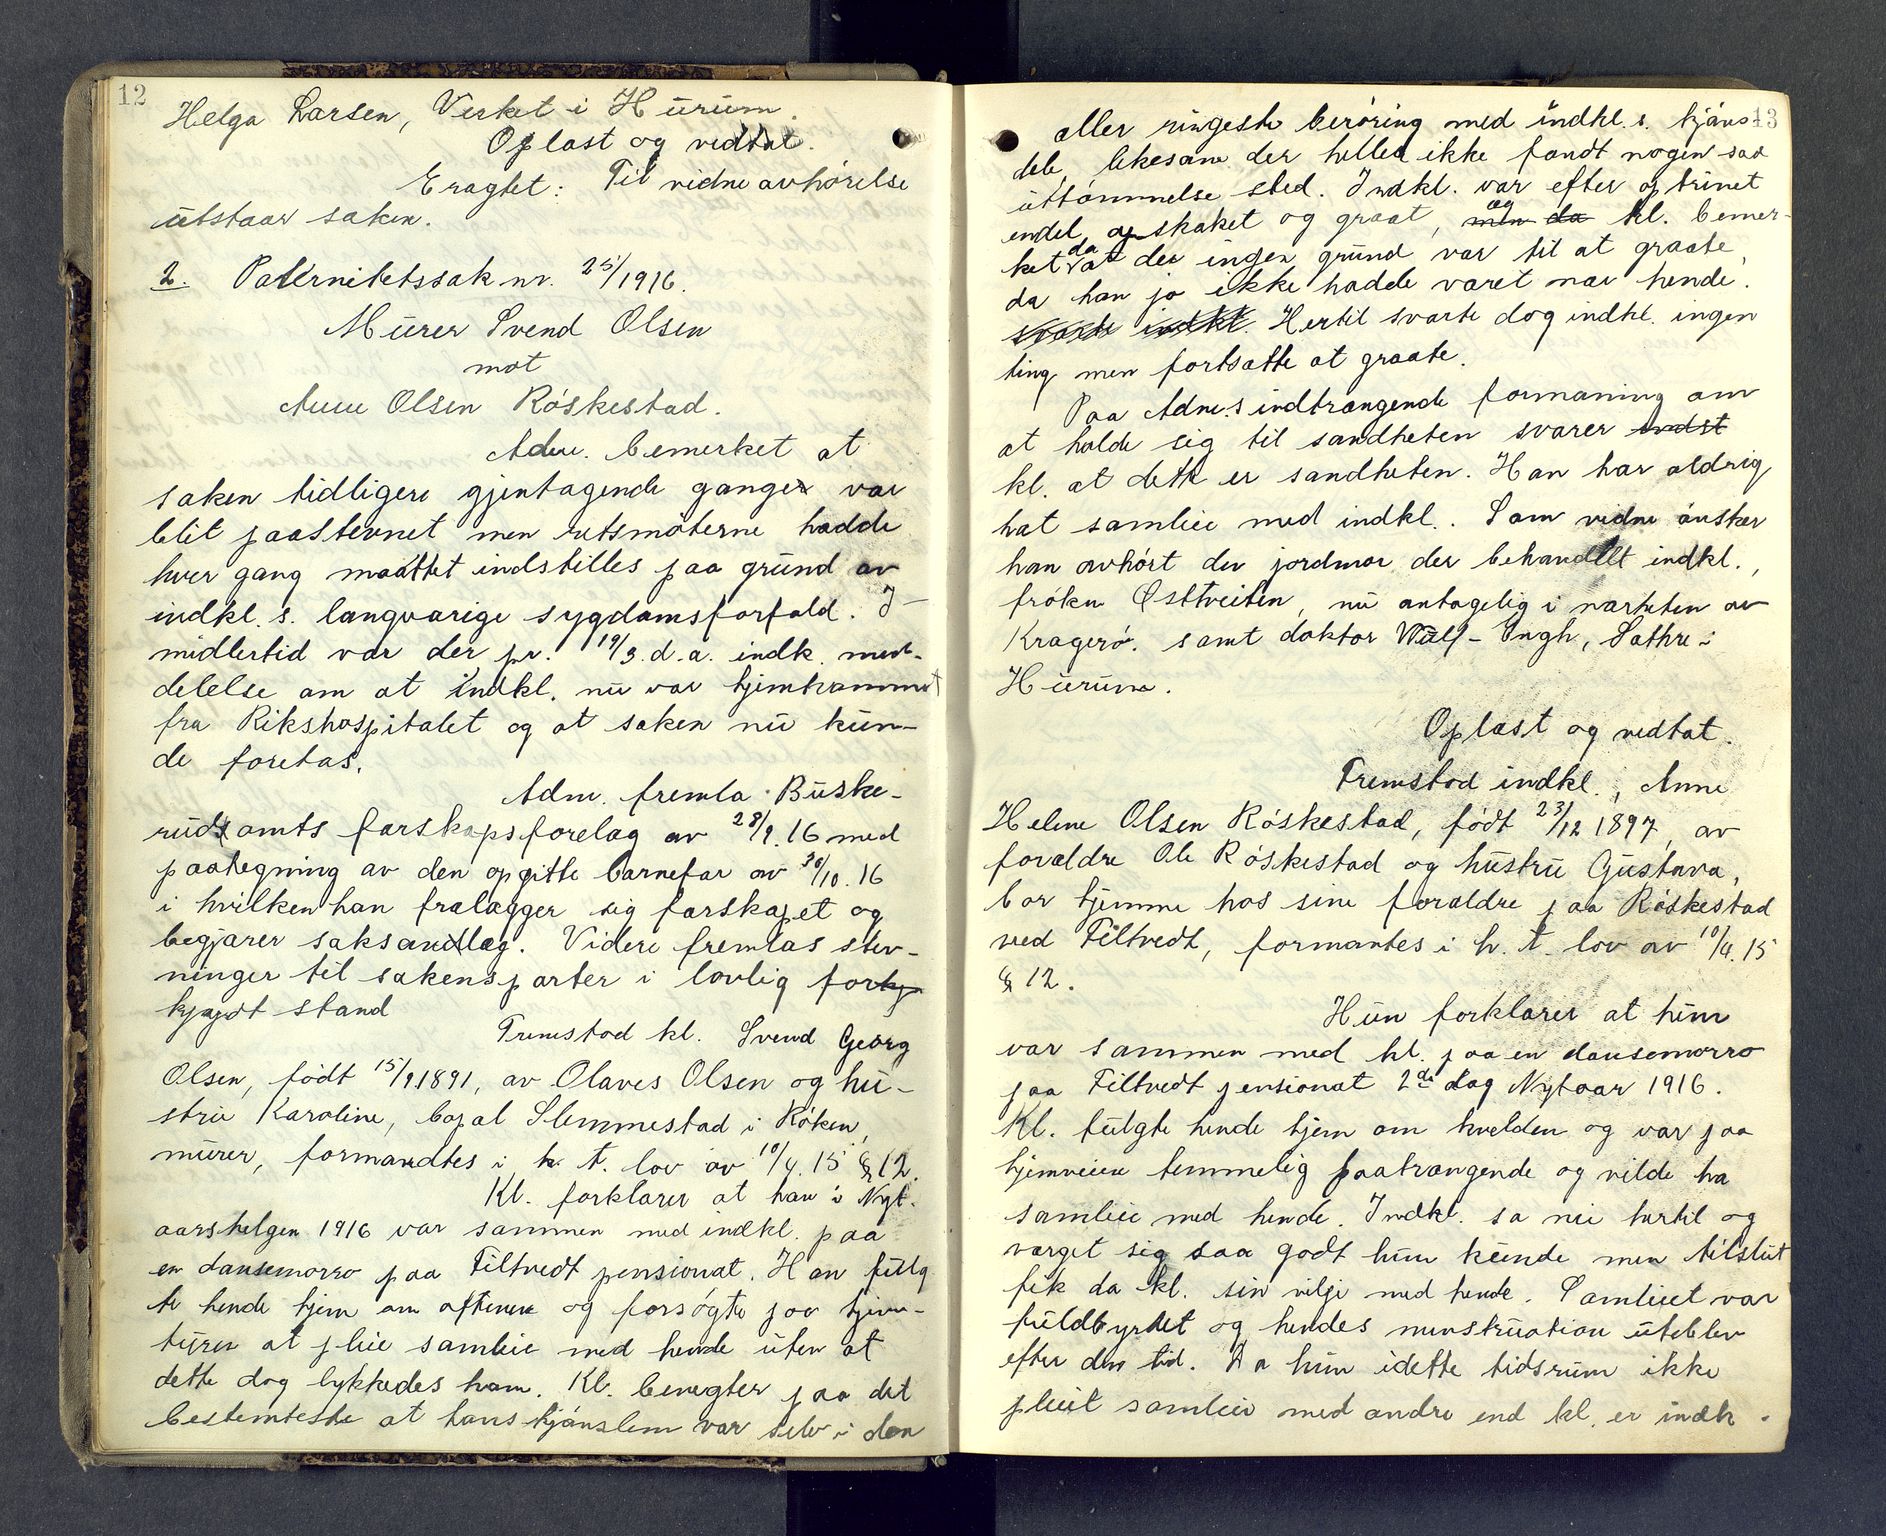 12
Helga Larsen, Verket i Hurum.
Oplæst og vedtat.
Eragtet: Til vidneavhørelse
utstaar saken.
2. Paternitetssak nr. 25/1916.
Murer Svend Olsen
mot
Anne Olsen Røskestad.
Adm. bemerket at
saken tidligere gjentagende ganger var
blit paastevnet men retsmøterne hadde
hver gang maattet indstilles paa grund av
indkl.s. langvarige sygdomsforfald. I-
midlertid var der pr. 19/3 d.a. indk. med-
delelse om at indkl. nu var hjemkommet
fra Rikshospitalet og at saken nu kun-
de foretas.
Adm. fremla Buske-
ruds amts farskapsforelæg av 28/9.16 med
paategning av den opgitte barnefar av 30/10.16
i hvilken han fralægger sig farskapet og
begjærer saksanlæg. Videre fremlas stev-
ninger til sakens parter i lovlig forkyn
kyndt stand
Fremstod kl. Svend Georg
Olsen, født 15/9 1891, av Olaves Olsen og hu-
stru Karoline, bopæl Slemmestad i Røken,
murer, formandtes i h.t. lov av 10/4.15 § 12.
Kl. forklarer at han i Nyt-
aarshelgen 1916 var sammen med indkl. paa
en dansemorro paa Filtvedt pensionat. Han fulg
te hende hjem om aftenen og forsøgte paa hjem-
turen at pleie samleie med hende uten at
dette dog lykkedes ham. Kl. benegter paa det
bestemteste at hans kjønslem var selv i den
13
aller ringeste berøring med indkl.s. kjøns
dele, likesom der heller ikke fandt nogen sæd
uttømmelse sted. Indkl. var efter optrinet
endel opskaket og graat, men da og kl. bemer-
ket da at der ingen grund var til at graate,
da han jo ikke hadde været nær hende.
svarte indkl. Hertil svarte dog indkl. ingen
ting men fortsatte at graate.
Paa Adm.s indtrængende formaning om
at holde sig til sandheten svarer indst
kl. at dette er sandheten. Han har aldrig
hat samleie med indkl.. Som vidne ønsker
han avhørt den jordmor der behandlet indkl.,
frøken Østtveiten, nu antagelig i nærheten av
Kragerø. samt doktor Wulf-Engh, Sætre i
Hurum.
Oplæst og vedtat.
Fremstod indkl., Anne
Helene Olsen Røskestad, født 23/12 1897, av
forældre Ole Røskestad og hustru Gustava,
bor hjemme hos sine forældre paa Røskestad
ved Filtvedt, formantes i h.t. lov av 10/4.15
§ 12.
Hun forklarer at hun
var sammen med kl. paa en dansemorro
paa Filtvedt pensionat 2den dag Nytaar 1916.
Kl. fulgte hende hjem om kvelden og var paa
hjemveien temmelig paatrængende og vilde ha
samleie med hende. Indkl. sa nei hertil og
værget sig saa godt hun kunde men tilslut
fik da kl. sin vilje med hende. Samleiet var
fuldbyrdet og hendes menstruation uteblev
efter den tid. Da hun idette tidsrum ikke
pleiet samleie med andre end kl. er indk